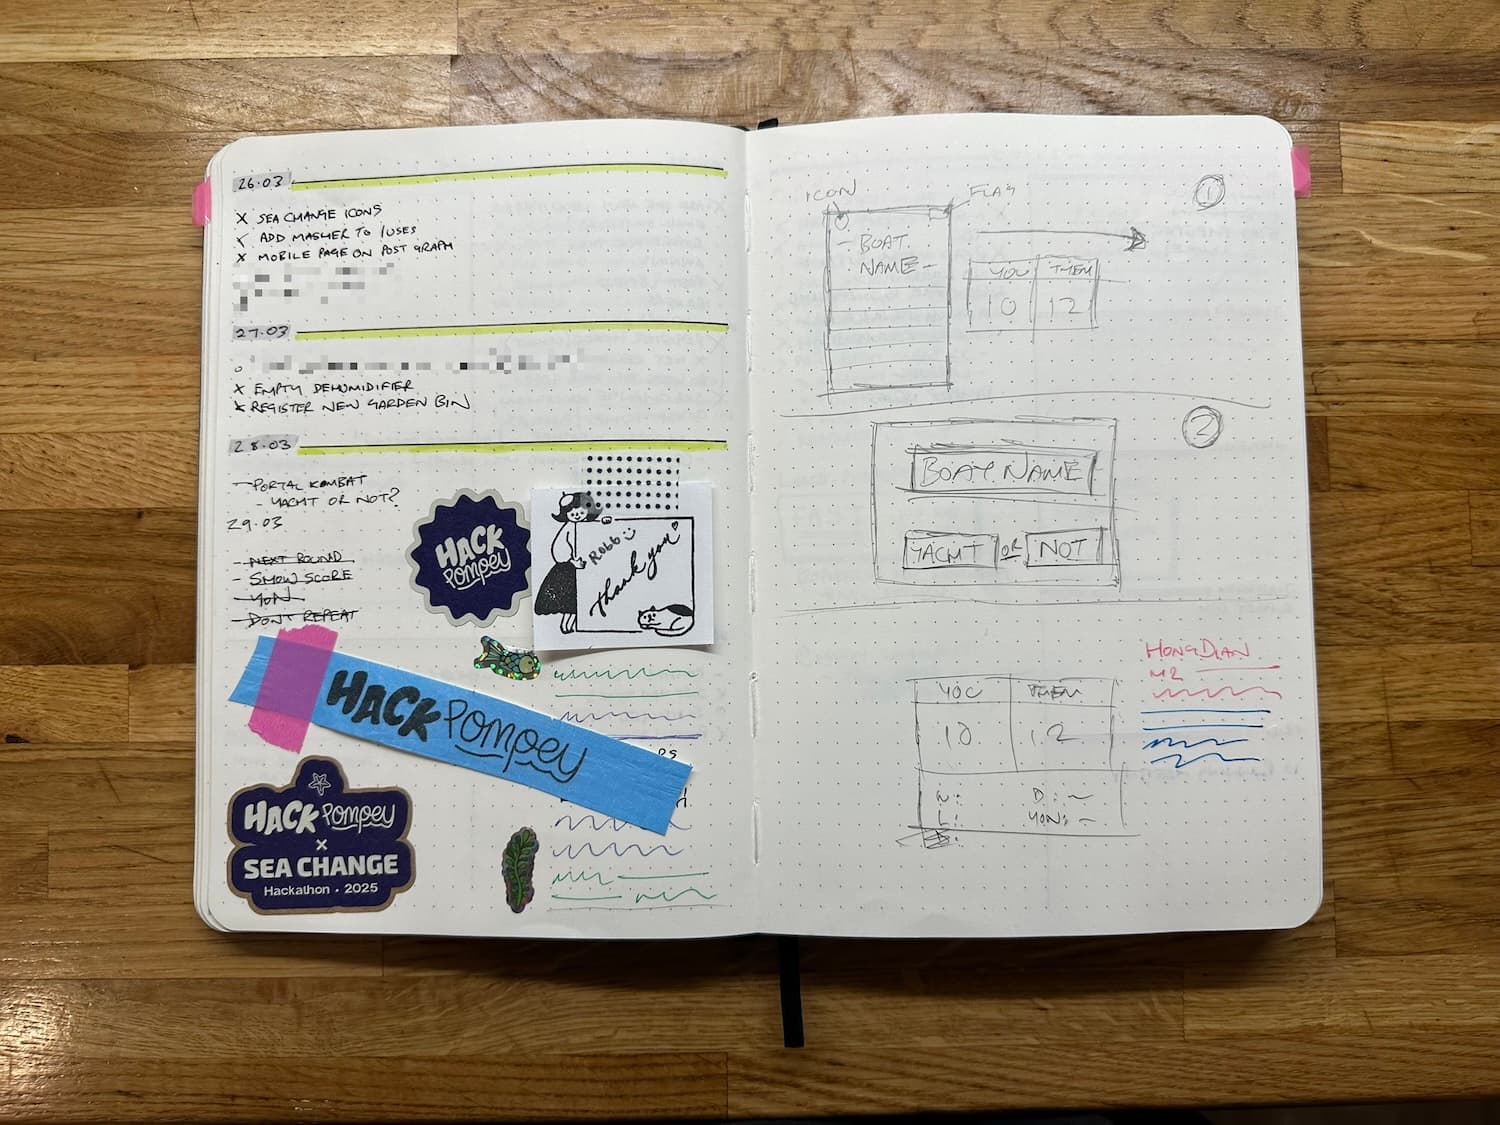 26.03
X SEA CHANGE ICONS
✓ ADD MASHER TO /USES
X MOBILE PAGE ON POST GRAPH
27.03
X EMPTY DEHUMIDIFIER
X REGISTER NEW GARDEN BIN
28.03
- PORTAL KOMBAT
- YACHT OR NOT?
29.03
- NEXT ROUND
- SHOW SCORE
- YON
- DON'T REPEAT
HACK
Pompey
Robb
Thank you
HACK Pompey
HACK Pompey
X
SEA CHANGE
Hackathon • 2025
ICON
FLAG
1
- BOAT
NAME -
YOU THEM
10 12
2
BOAT NAME
YACHT OR NOT
HONGDIAN
M2
YOU THEM
10 12
W: D: -
L: YON: -